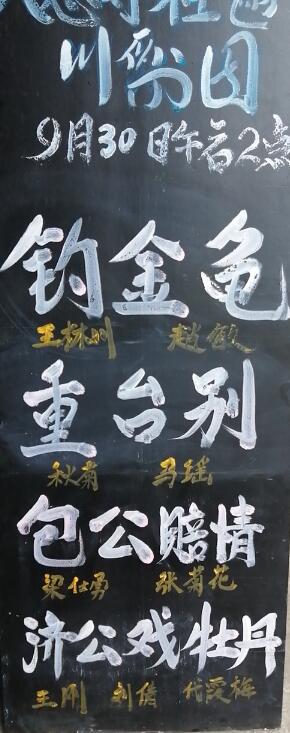 川剧团
9月30日午后2点
钓金龟
王林川 赵敏
重台别
秋菊 马瑶
包公赔情
梁仕勇 张菊花
济公戏牡丹
王刚 刘倩 代霞梅